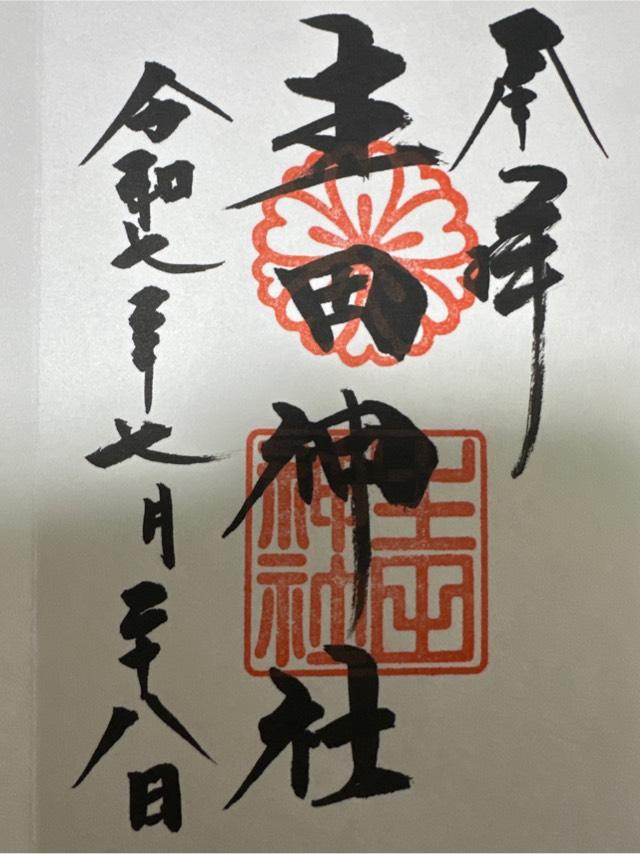 奉拝
生田神社
令和七年七月二十八日
生田神社